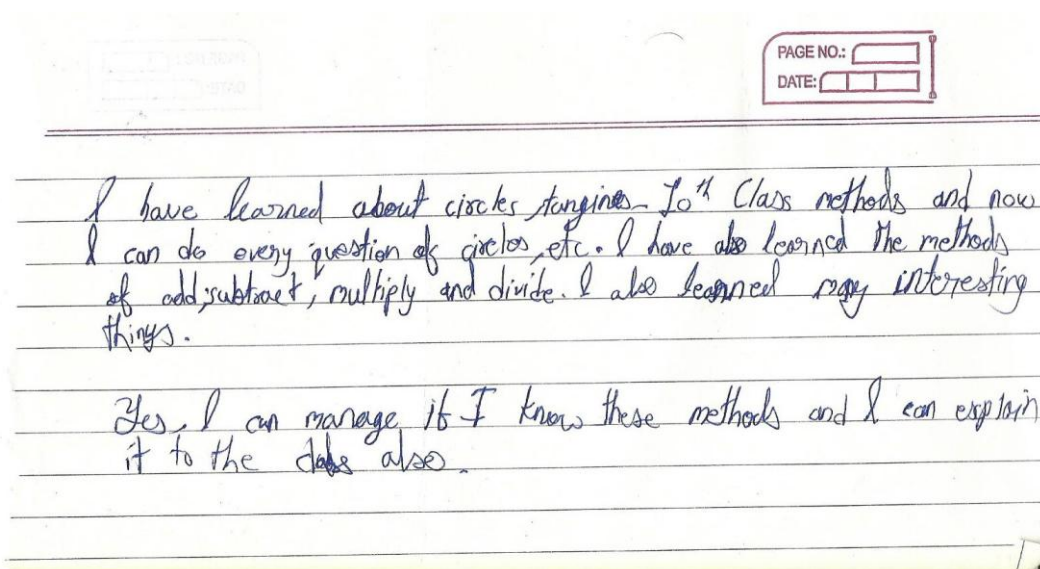 PAGE NO.:
DATE:
I have learned about circles, tangines 10th Class methods and now
I can do every question of circles, etc. I have also learned the methods
of add, subtract, multiply and divide. I also learned many interesting
things.
Yes, I can manage if I know these methods and I can explain
it to the also.